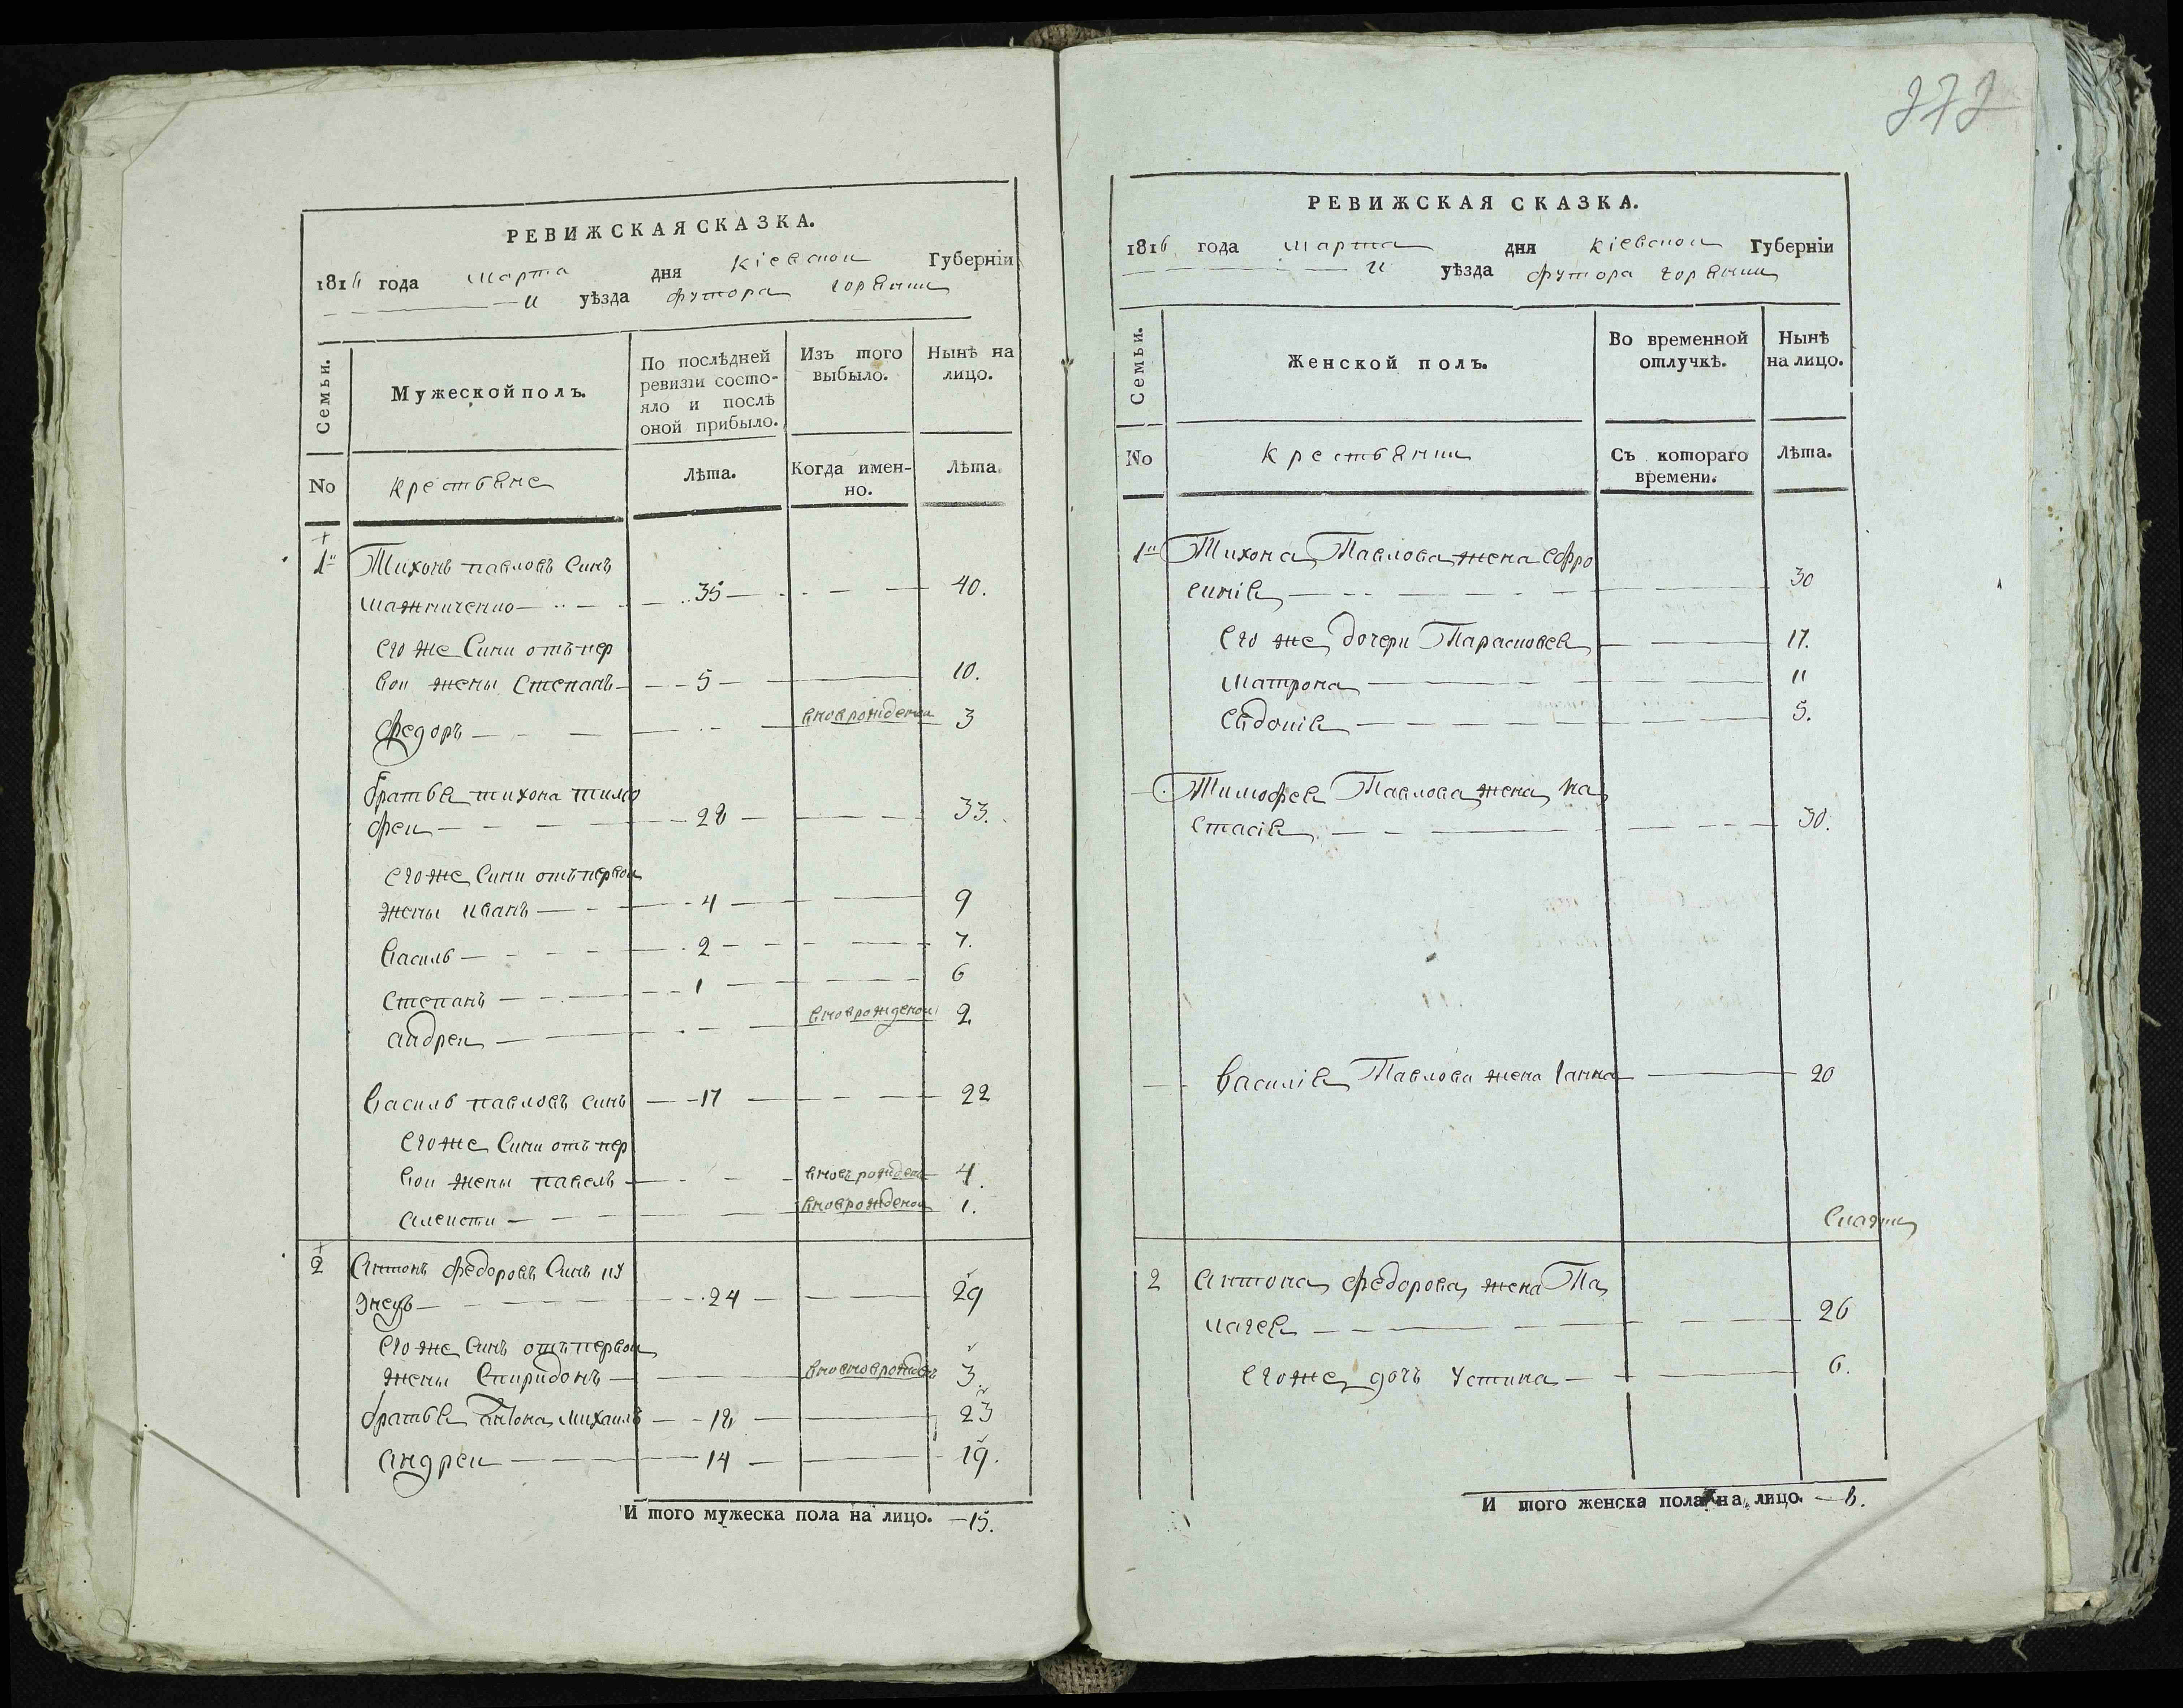 РЕВИЖСКАЯ СКАЗКА.
1816 года марта дня Кіевскои Губерніи
уѣзда футора
Семьи.
Мужеской полъ.
По послѣдней ревизіи состояло и послѣ оной прибыло.
Изъ того выбыло.
Нынѣ на лицо.
No
крестьяне
Лѣта.
Когда именно.
Лѣта.
1й Тихонъ павловъ Синъ
35 40.
его же Сини отъ пер
вои жены Степанъ 5 10.
федоръ вноврожденои 3
братья тихона тимо
феи 28 33.
его же Сини отъ первои
жены иванъ 4 9
Василь 2 7.
Степанъ 1 6
андреи вноврожденои 2
Василь павловъ Синъ 17 22
его же Сини отъ пер
вои жены павелъ 4.
вноврожденои 1.
2 Антонъ федоровъ Синъ
24 29
его же Синъ отъ первои
жены Спиридонъ 3.
братья Антона михаилъ 18 23
андреи 14 19.
И того мужеска пола на лицо. 15.
272
РЕВИЖСКАЯ СКАЗКА.
1816 года марта дня Кіевскои Губерніи
уѣзда футора
Семьи.
Женской полъ.
Во временной отлучкѣ.
Нынѣ на лицо.
No
Съ котораго времени.
Лѣта.
1й Тихона Павлова жена Ефро
синія 30
его же дочери Парасковея 17.
матрона 11
Евдокія 5.
Тимофея Павлова жена На
стасія 30.
Василія Павлова жена Ганна 20
2 Антона федорова жена Па
лагея 26
его же дочь Устина 6.
И того женска пола на лицо. 8.